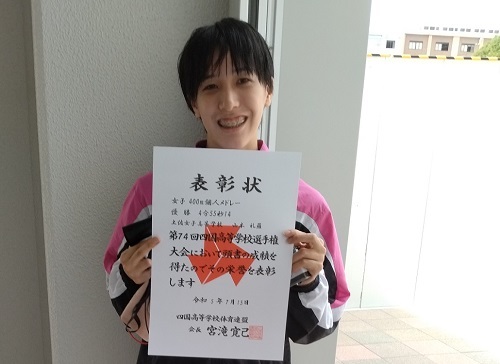 表彰状
女子 400m個人メドレー
優勝 4分55秒14
土佐女子高等学校
第74回四国高等学校選手権
大会において頭書の成績を
得たのでその栄誉を表彰
します
令和 5年7月15日
四国高等学校体育連盟
会長 宮滝寛己